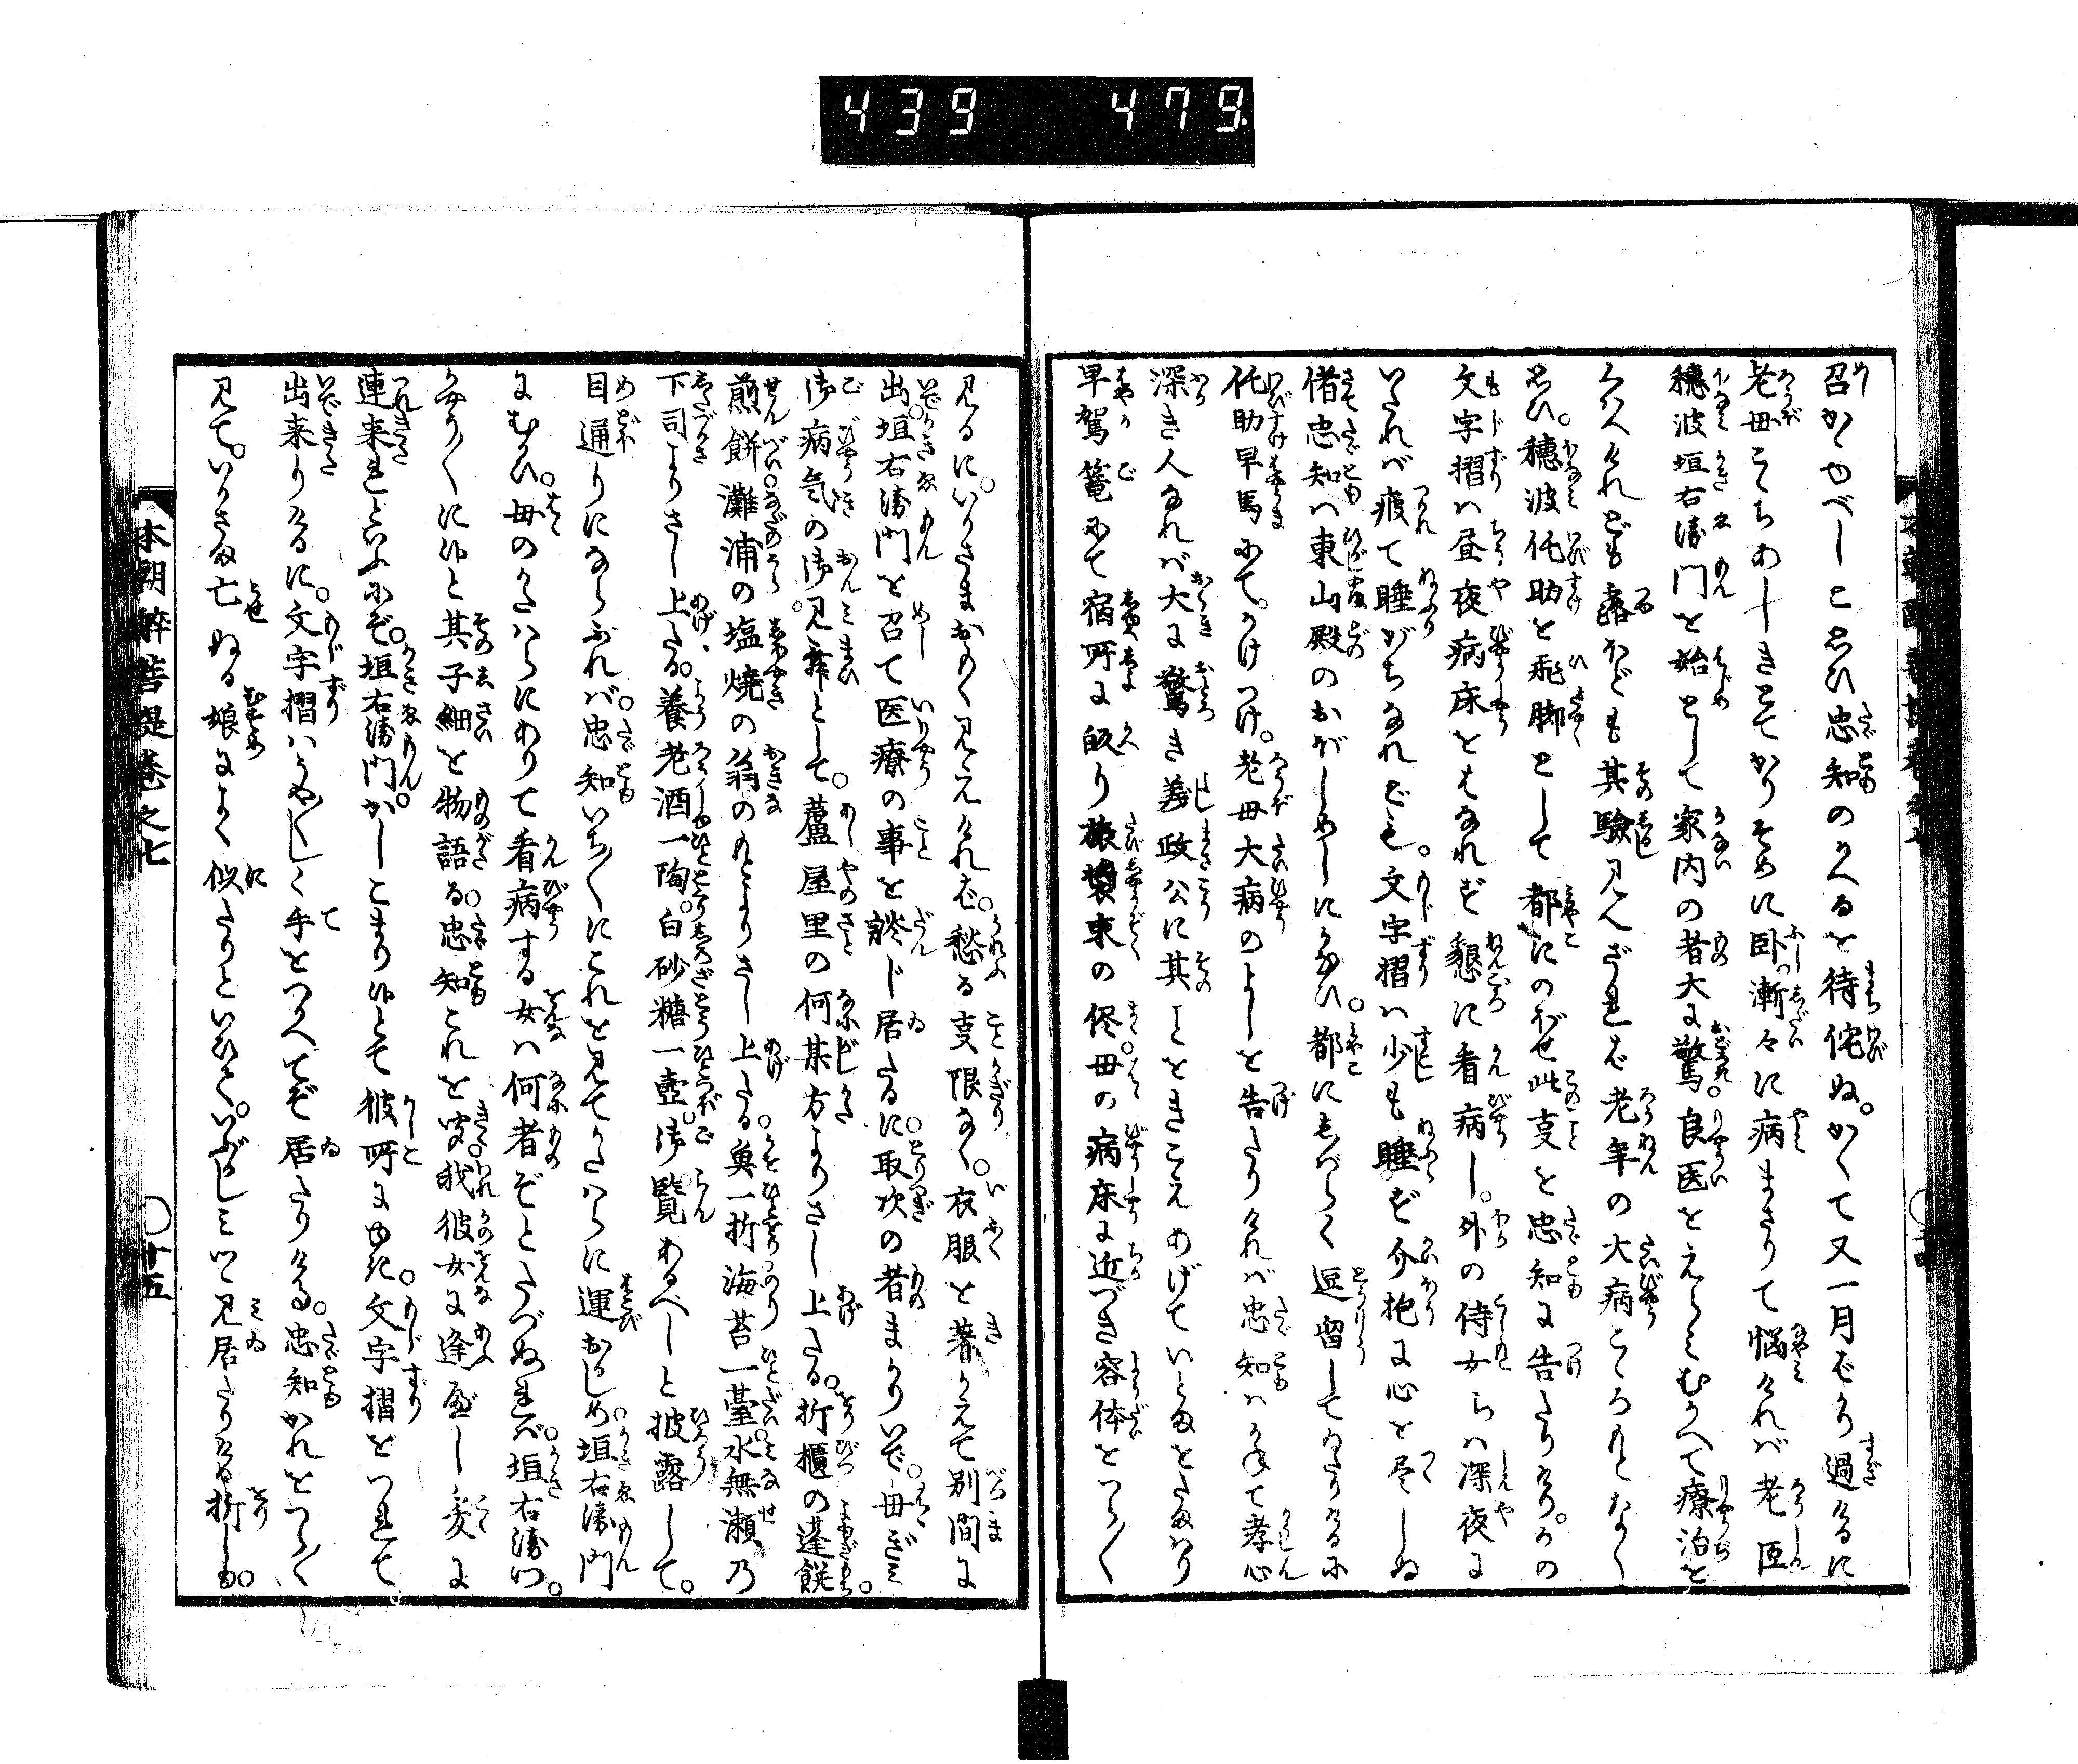 439 479
召かゝゆべしと思ひ忠知のかへるを待侘ぬ。かくて又一月ばかり過けるに
老母こゝちあしきとてかりそめに臥漸々に病まさりて悩ければ老臣
穂波垣右衛門を始として家内の者大に驚。良医をえらみむかへて療治を
くはへけれども露ほども其験見へざれば老年の大病こゝろもとなく
思ひ。穂波佗助を飛脚として都にのぼせ此事を忠知に告たりけり。かの
文字摺は昼夜病床をはなれず懇に看病し。外の侍女らは深夜に
いたれば疲て睡がちなれども。文字摺は少も睡ず介抱に心を尽しぬ
偖忠知は東山殿のおぼしめしにかなひ。都にしばらく逗留してゐたりけるに
佗助早馬にて。かけつけ。老母大病のよしを告たりければ忠知はかねて孝心
深き人なれば大に驚き義政公に其ことをきこえあげていとまをたまはり
早駕篭にて宿所に皈り旅装束の侭。母の病床に近づき容体をつら〱
見るに。いかさまおもく見えければ。愁る事限なく。衣服を着かえて別間に
出。垣右衛門を召て医療の事を談じ居たるに。取次の者まかりいで。母ぎみ
御病気の御見舞として。蘆屋里の何某方よりさし上たる。折櫃の蓬餅。
煎餅灘浦の塩焼の翁のもとよりさし上たる魚一折海苔一臺。水無瀬乃
下司よりさし上たる。養老酒一陶。白砂糖一壺。御覧あるべしと披露して。
目通りにならぶれば。忠知いち〱にこれを見てかたはらに運おかしめ。垣右衛門
にむかひ。母のかたはらにありて看病する女は何者ぞとたづぬれば。垣右衛門。
かう〱に候と其子細を物語る。忠知これを聞。我彼女に逢度し爰に
連来れといふにぞ。垣右衛門。かしこまり候とて彼所にゆき。文字摺をつれて
出来りけるに。文字摺はうや〱しく手をつへてぞ居たりける。忠知かれをつら〱
見て。いかさま亡ぬる娘によく似たりといひて。いぶかしみつゝ見居たりける折しも。
本朝酔菩提巻之七
十五